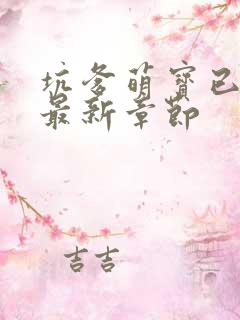 坑爹萌宝已
最新章节
吉吉